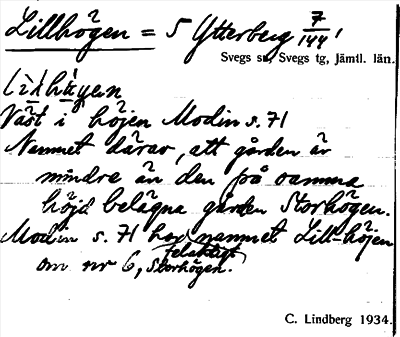 Lillhögen = 5 Ytterberg 7/144 1
Svegs sn, Svegs tg, Jämtl. län.
Väst i höjen Modin s. 71
Namnet därav, att gården är
mindre än den på samma
höjd belägna gården Storhögen.
Modin s. 71 har felaktigt namnet Lill-höjen
om nr 6, Storhögen.
C. Lindberg 1934.